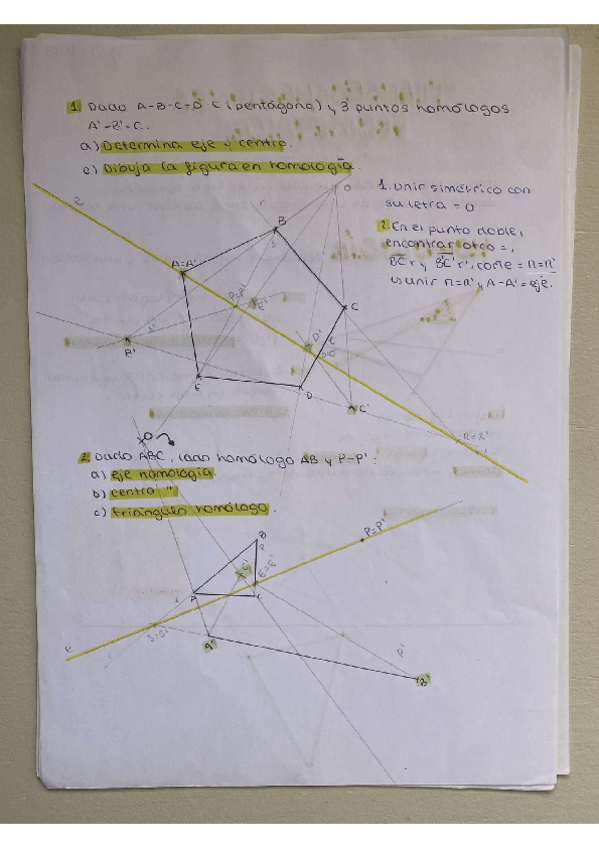 1. Dado A-B-C-D-E (pentágono) y 3 puntos homólogos
A'-B'-C'.
a) Determina eje y centro.
c) Dibuja la figura en homología.
1. Unir simétrico con
su letra = O
2. En el punto doble,
encontrar otro =,
BC r y B'C' r', corte = R=R'
unir R=R' y A-A' = eje.
r
O
B
s
A=A'
P=P'
E'
C
B'
D'
E
D
C'
R=R'
O
2. Dado ABC, lado homólogo AB y P=P':
a) eje homología.
b) centro "
c) triángulo homólogo.
B
P
P=P'
C'
E=E'
A
C
A'
P'
B'
e